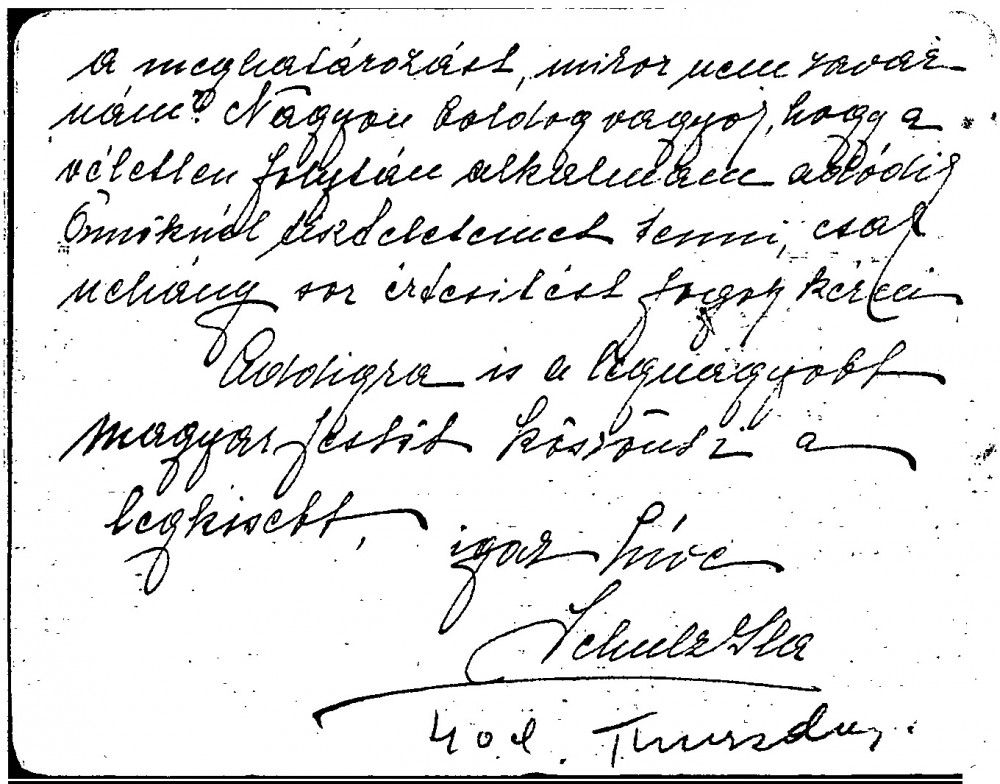 a meghatározást, mikor nem zavar-
nám? Nagyon boldog vagyok, hogy a
véletlen folytán alkalmam adódik
Önöknél tiszteletemet tenni, csak
nehány sor értesitést fogok kérni
Addigra is a legnagyobb
magyar festőt köszönti a
legkisebb,
igaz híve
Schulz Ila
Thursday.